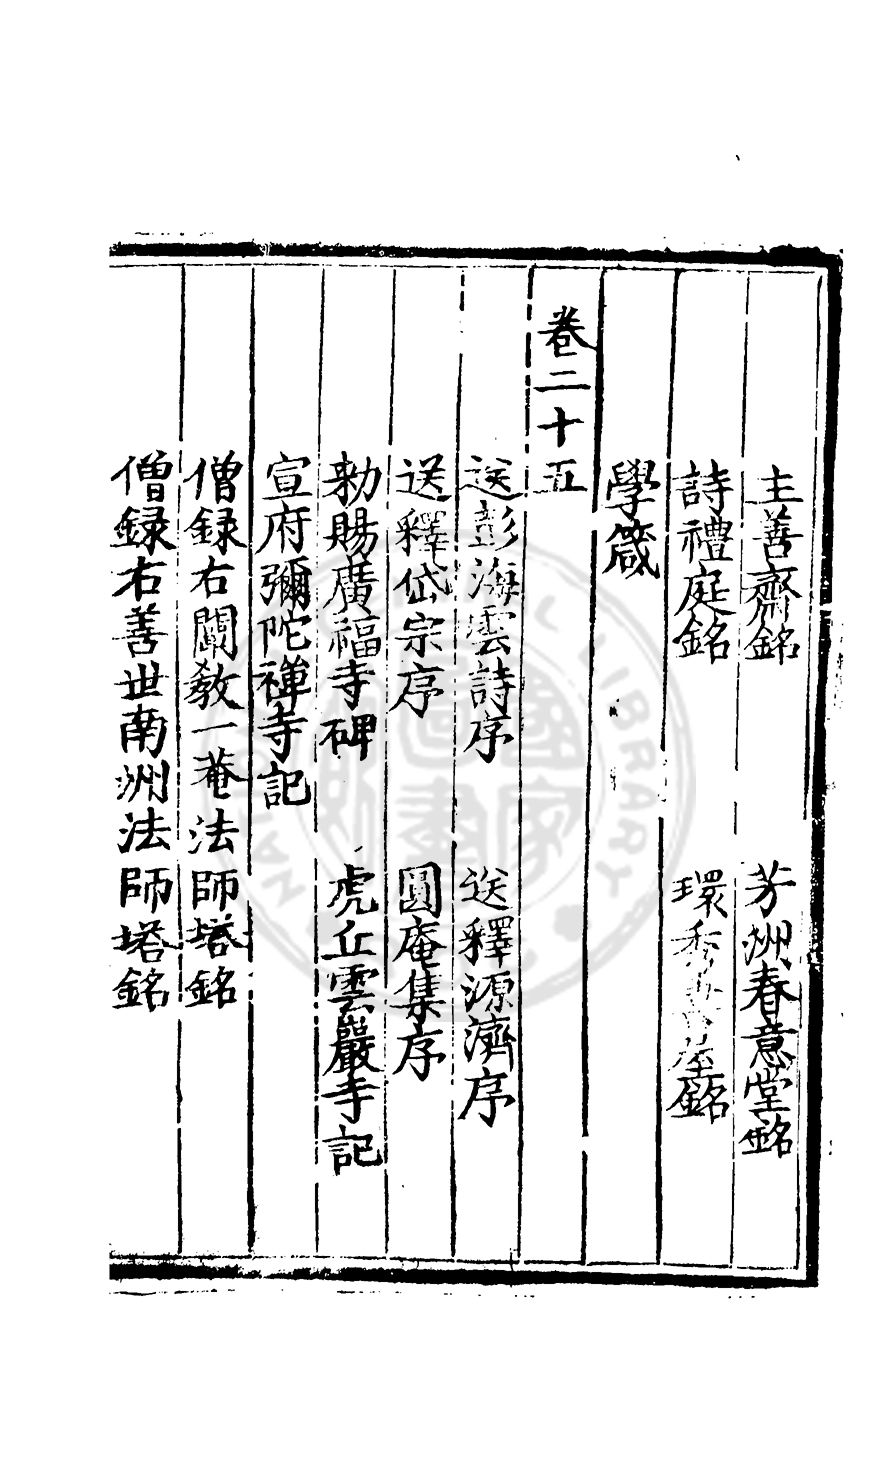 主善齋銘　芳洲春意堂銘
詩禮庭銘　環秀書屋銘
學箴
卷二十五
送彭海雲詩序　送釋源濟序
送釋岱宗序　圓庵集序
勑賜廣福寺碑　虎丘雲巖寺記
宣府彌陀禪寺記
僧録右闡教一菴法師塔銘
僧録右善世南洲法師塔銘